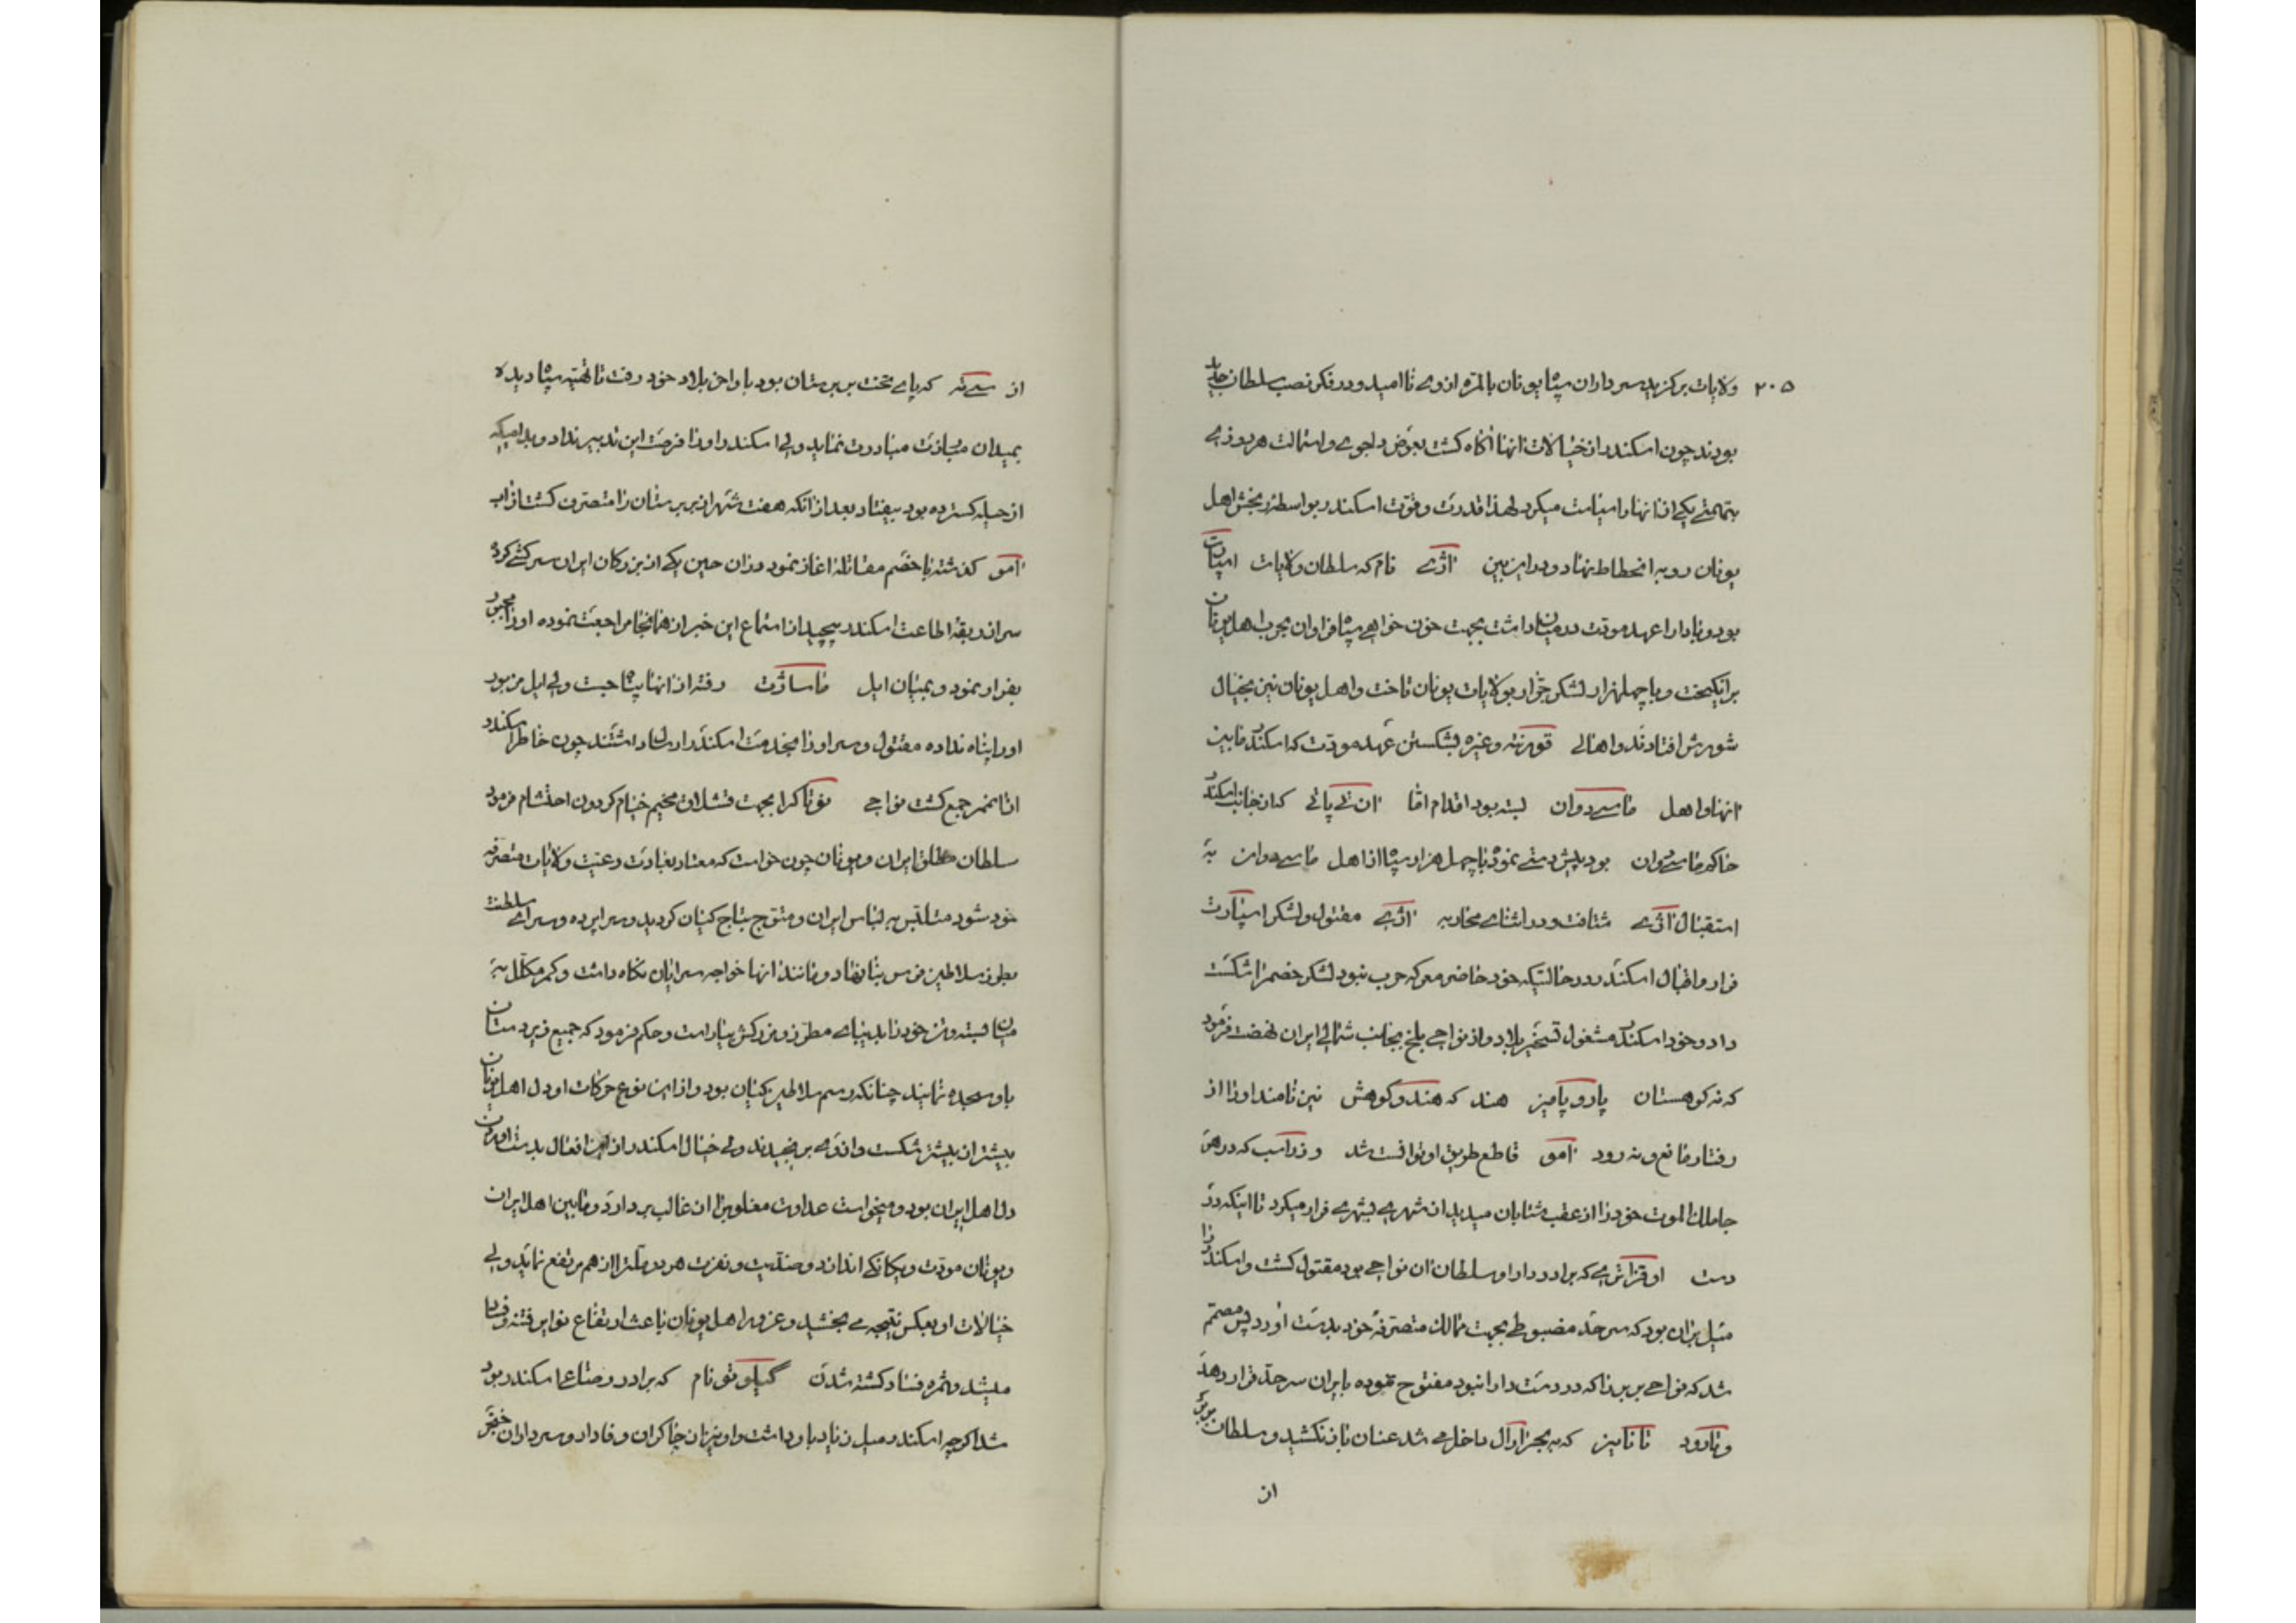 ۲۰۵ ولایات برکزید سرداران سپاه یونان بالمره از وی ناامید و در فکر نصب سلطان جدید
بودند چون اسکندر از خیالات انها اکاه کشت بعوض دلجوے و استمالت هر روزے
بتهمتے یکے از انها را سیاست میکرد لهذا قدرت و قوت اسکندر بواسطه رنجش اهل
یونان رو به انحطاط نهاد و در این بین اژے نام که سلطان ولایات اسپارت
بود و با دارا عهد مودت در میان داشت بجهت خون خواهے سپاه فراوان بحرب اهل یونان
برانکیخت و با چهل هزار لشکر جرار بولایات یونان تاخت و اهل یونان نیز بخیال
شورش افتادند و اهالے قورنته و غیره بشکستن عهد مودت که اسکندر مابین
انها و اهل ماسدوان بسته بود اقدام اما ان تے پاتے که از جانب اسکندر
حاکم ماسدوان بود پیش دستے نموده با چهل هزار سپاه از اهل ماسدوان به
استقبال اژے شتافت و در اثناے محاربه اژے مقتول و لشکر اسپارت
فرار و اقبال اسکندر در حالتیکه خود حاضر معرکه حرب نبود لشکر خصم را شکست
داد و خود اسکندر مشغول تسخیر بلاد و از نواحے بلخ بجانب شمالے ایران نهضت فرمود
که نه کوهستان پاروپامیز هند که هندوکوهش نیز نامند او را از
رفتار مانع و نه رود امو قاطع طریق او توانست شد و که در هر
جا ملک الموت خود را از عقب شتابان میدید از شهرے بشهرے فرار میکرد تا اینکه در
دست که برادر دارا و سلطان ان نواحے بود مقتول کشت و اسکندر را
میل بران بود که سرحد مضبوطے بجهت ممالک متصرفه خود بدست اورد پس مصمم
شد که نواحے بربر را که در دست دارا نبود مفتوح نموده با ایران سرحد قرار دهد
و تا رود تانایز که به بحر ارال داخل مے شد عنان باز نکشید و سلطان بربر
از
از سے ته که پاے تخت بربرستان بود باواخر بلاد خود رفت تا تهیه سپاه دیده
بمیدان مبارزت مبادرت نماید ولے اسکندر او را فرصت این تدبیر نداد و بدامیکه
از حیله کسترده بود بیفتاد بعد از انکه هفت شهر از بربرستان را متصرف کشت از اب
امو کذشته با خصم مقاتله اغاز نمود در ان حین یکے از بزرکان ایران سرکشے کرده
سر از ربقه اطاعت اسکندر پیچید از استماع این خبر از همانجا مراجعت نموده او را مجبور
بفرار نمود و بمیان ایل ماساژت رفته از انها پناه جست ولے ایل مزبور
او را پناه نداده مقتول و سر او را بخدمت اسکندر ارسال داشتند چون خاطر اسکندر
از انممر جمع کشت نواحے نوتاکرا بجهت قشلاق مخیم خیام کردون احتشام فرمود
سلطان مطلق ایران و یونان چون خواست که معتاد بعادت رعیت و ولایات متصرفه
خود شود متلبس به لباس ایران و متوج بتاج کیان کردید و سراپرده و سراے سلطنت
بطرز سلاطین فرس بنا نهاد و مانند انها خواجه سرایان نکاه داشت و کمر مکلل به
میان بسته و تن خود را بدیباے مطرز و زرکش بیاراست و حکم فرمود که جمیع زیردستان
باو سجده نمایند چنانکه رسم سلاطین کیان بود و از این نوع حرکات او دل اهل یونان
بیشتر از پیشتر شکست و از وے برنجیدند ولے خیال اسکندر از این افعال بدست اوردن
دل اهل ایران بود و میخواست عداوت مغلوبین را از غالب بر دارد و مابین اهل ایران
و یونان مودت و یکانکے اندازد و ضدیت و نفرت هر دو ملت را از هم مرتفع نماید ولے
خیالات او بعکس نتیجه مے بخشید و غرور اهل یونان باعث ارتفاع نوایر فتنه و فساد
میشد و ثمره فساد کشته شدن کیلوتو نام که برادر رضاعے اسکندر بود
شد اکرچه اسکندر میل زیاد باو داشت و او نیز از چاکران وفادار و سرداران